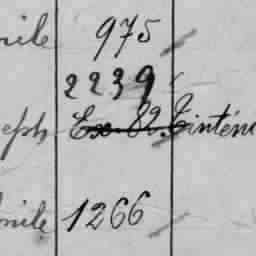 nile 975
2239
eph Ex. 82. Tintén
mile 1266